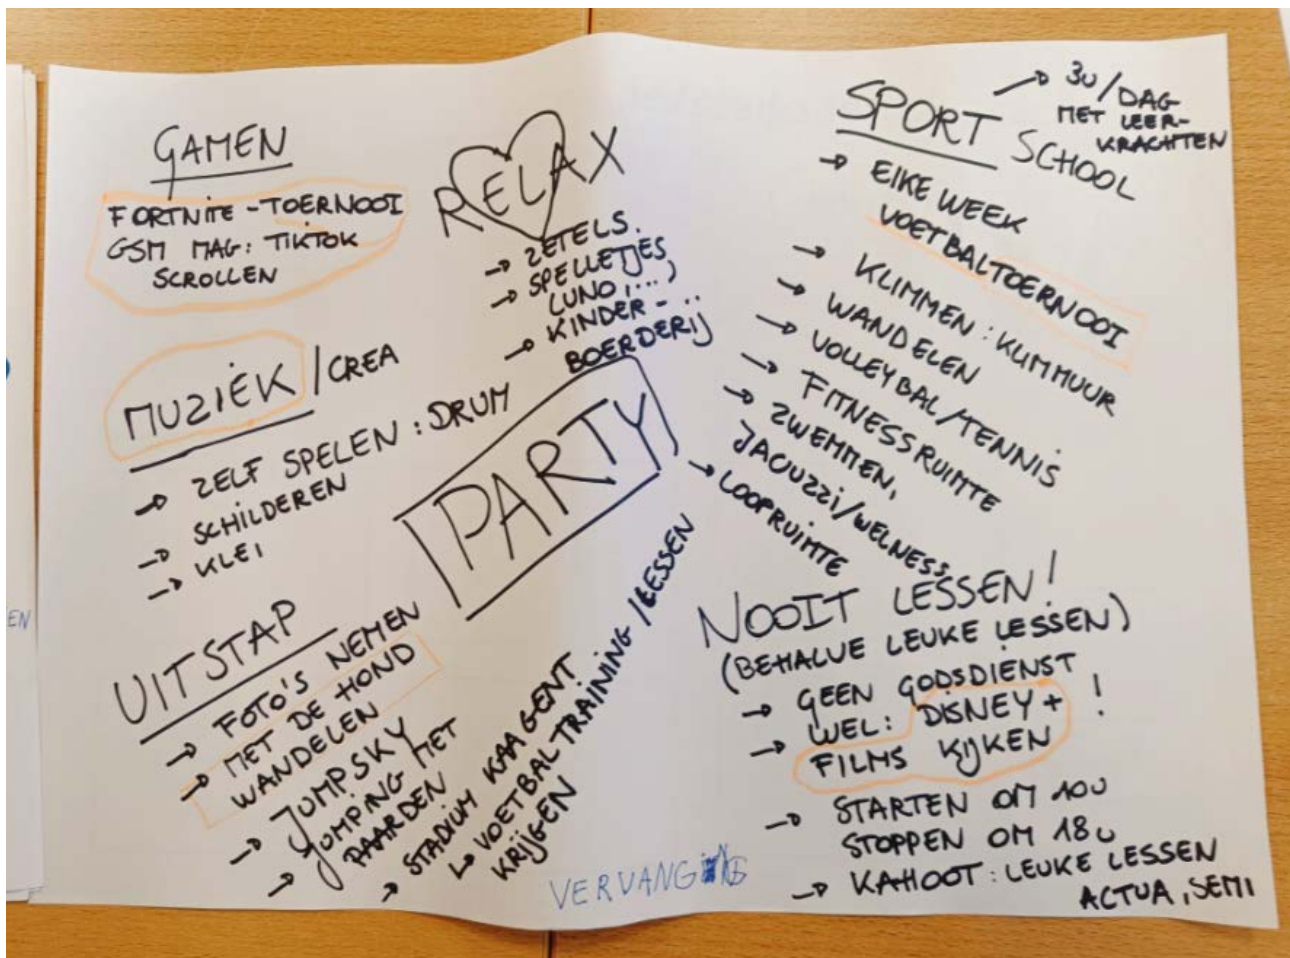 GAMEN
FORTNITE-TOERNOOI
GSM MAG: TIKTOK
SCROLLEN
MUZIEK/CREA
→ ZELF SPELEN: DRUM
→ SCHILDEREN
→ KLEI
UITSTAP
→ FOTO'S NEMEN
→ MET DE HOND
WANDELEN
→ JUMPSKY
→ JUMPING MET
PAARDEN
→ STADIUM KAA GENT
↳ VOETBALTRAINING/LESSEN
KRIJGEN
RELAX
→ ZETELS.
→ SPELLETJES
(UNO,...)
→ KINDER-
BOERDERIJ
PARTY
SPORT SCHOOL
→ 3U/DAG
MET LEER-
KRACHTEN
→ ELKE WEEK
VOETBALTOERNOOI
→ KLIMMEN: KLIMMUUR
→ WANDELEN
→ VOLLEYBAL/TENNIS
→ FITNESSRUIMTE
→ ZWEMMEN,
JACUZZI/WELNESS
→ LOOPRUIMTE
NOOIT LESSEN!
(BEHALVE LEUKE LESSEN)
→ GEEN GODSDIENST
→ WEL: DISNEY+ !
FILMS KIJKEN
→ STARTEN OM 10U
STOPPEN OM 18U
→ KAHOOT: LEUKE LESSEN
ACTUA, SEMI
EN